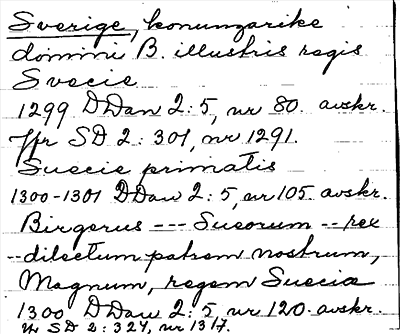 Sverige, konungarike
domini B. illustris regis
Svecie
1299 DDan 2:5, nr 80. avskr.
Jfr SD 2:301, nr 1291.
Suecie primatis
1300-1301 DDan 2:5, nr 105. avskr.
Birgerus --- Sueorum -- rex
-- dilectum patrem nostrum,
Magnum, regem Suecia
1300 DDan 2:5, nr 120. avskr.
Jfr SD 2:324, nr 1317.